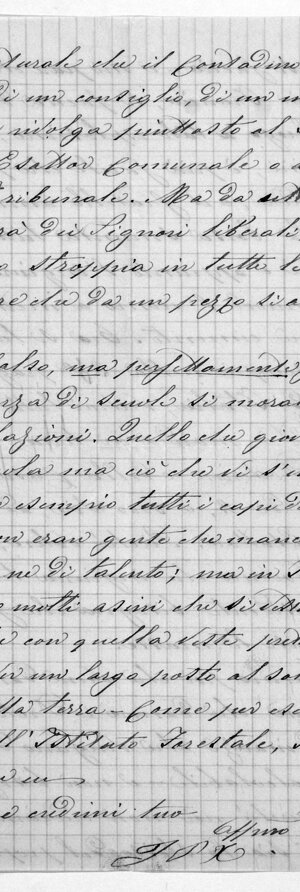 turale che il Contadino
di un consiglio, di un
rivolga piuttosto al
Esattor Comunale o a
Tribunale. Ma da
rà dei Signori liberali
o stroppia in tutte le
re che da un pezzo si
falso, ma perfettamente
rza di scuole si
lazioni. Quello che
ola ma ciò che vi s'
esempio tutti i capi
on eran gente che
ne di talento; ma in
molti asini che si
con quella veste
un largo posto al
lla terra - Come per
ll'Istituto Forestale,
e credimi tuo
affmo